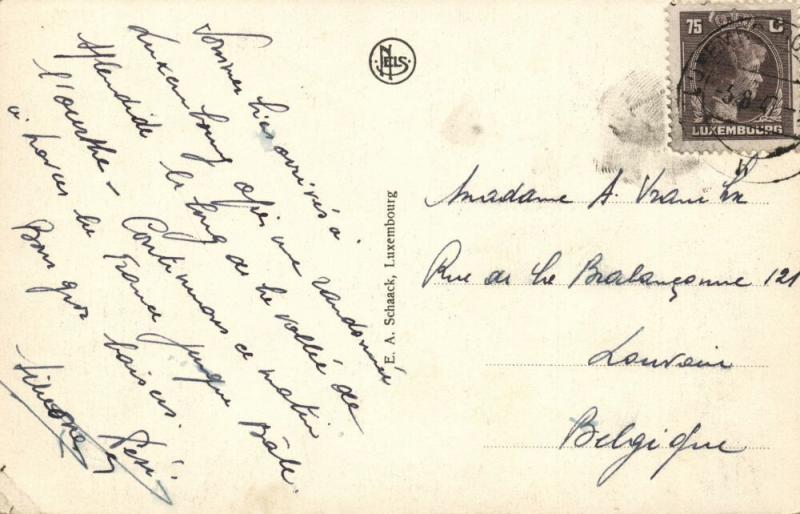 Sommes hier arrivés à
Luxembourg après une randonnée
splendide le long de la vallée de
l'ourthe - Continuons ce matin
à travers la France jusque Bâle.
Bons gros baisers.
Simone
NELS
E. A. Schaack, Luxembourg
75 C
LUXEMBOURG
Madame A.
Rue de la Brabançonne 121
Louvain
Belgique